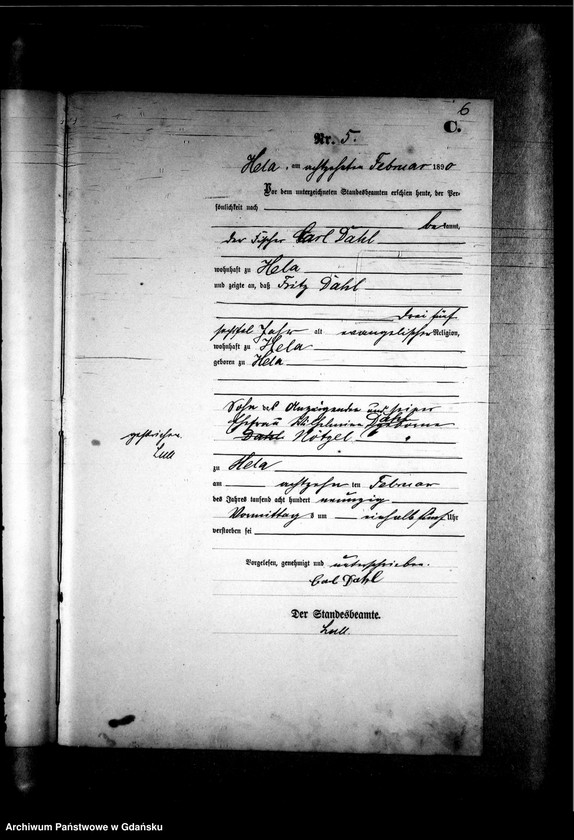 6
C.
Nr. 5.
Hela, am achtzehnten Februar 1890
Vor dem unterzeichneten Standesbeamten erschien heute, der Per-
sönlichkeit nach
bekannt,
der Fischer Carl Dahl
wohnhaft zu Hela
und zeigte an, daß Fritz Dahl
drei fünf
sechstel Jahr alt evangelischer Religion,
wohnhaft zu Hela
geboren zu Hela
Sohn des Anzeigenden und seiner
Ehefrau Wilhelmine Dahl geborne
Dahl Nötzel
gestrichen
Lull
zu Hela
am achtzehn ten Februar
des Jahres tausend acht hundert neunzig
Vormittags um einhalb fünf Uhr
verstorben sei
Vorgelesen, genehmigt und unterschrieben.
Carl Dahl
Der Standesbeamte.
Lull.
Archiwum Państwowe w Gdańsku